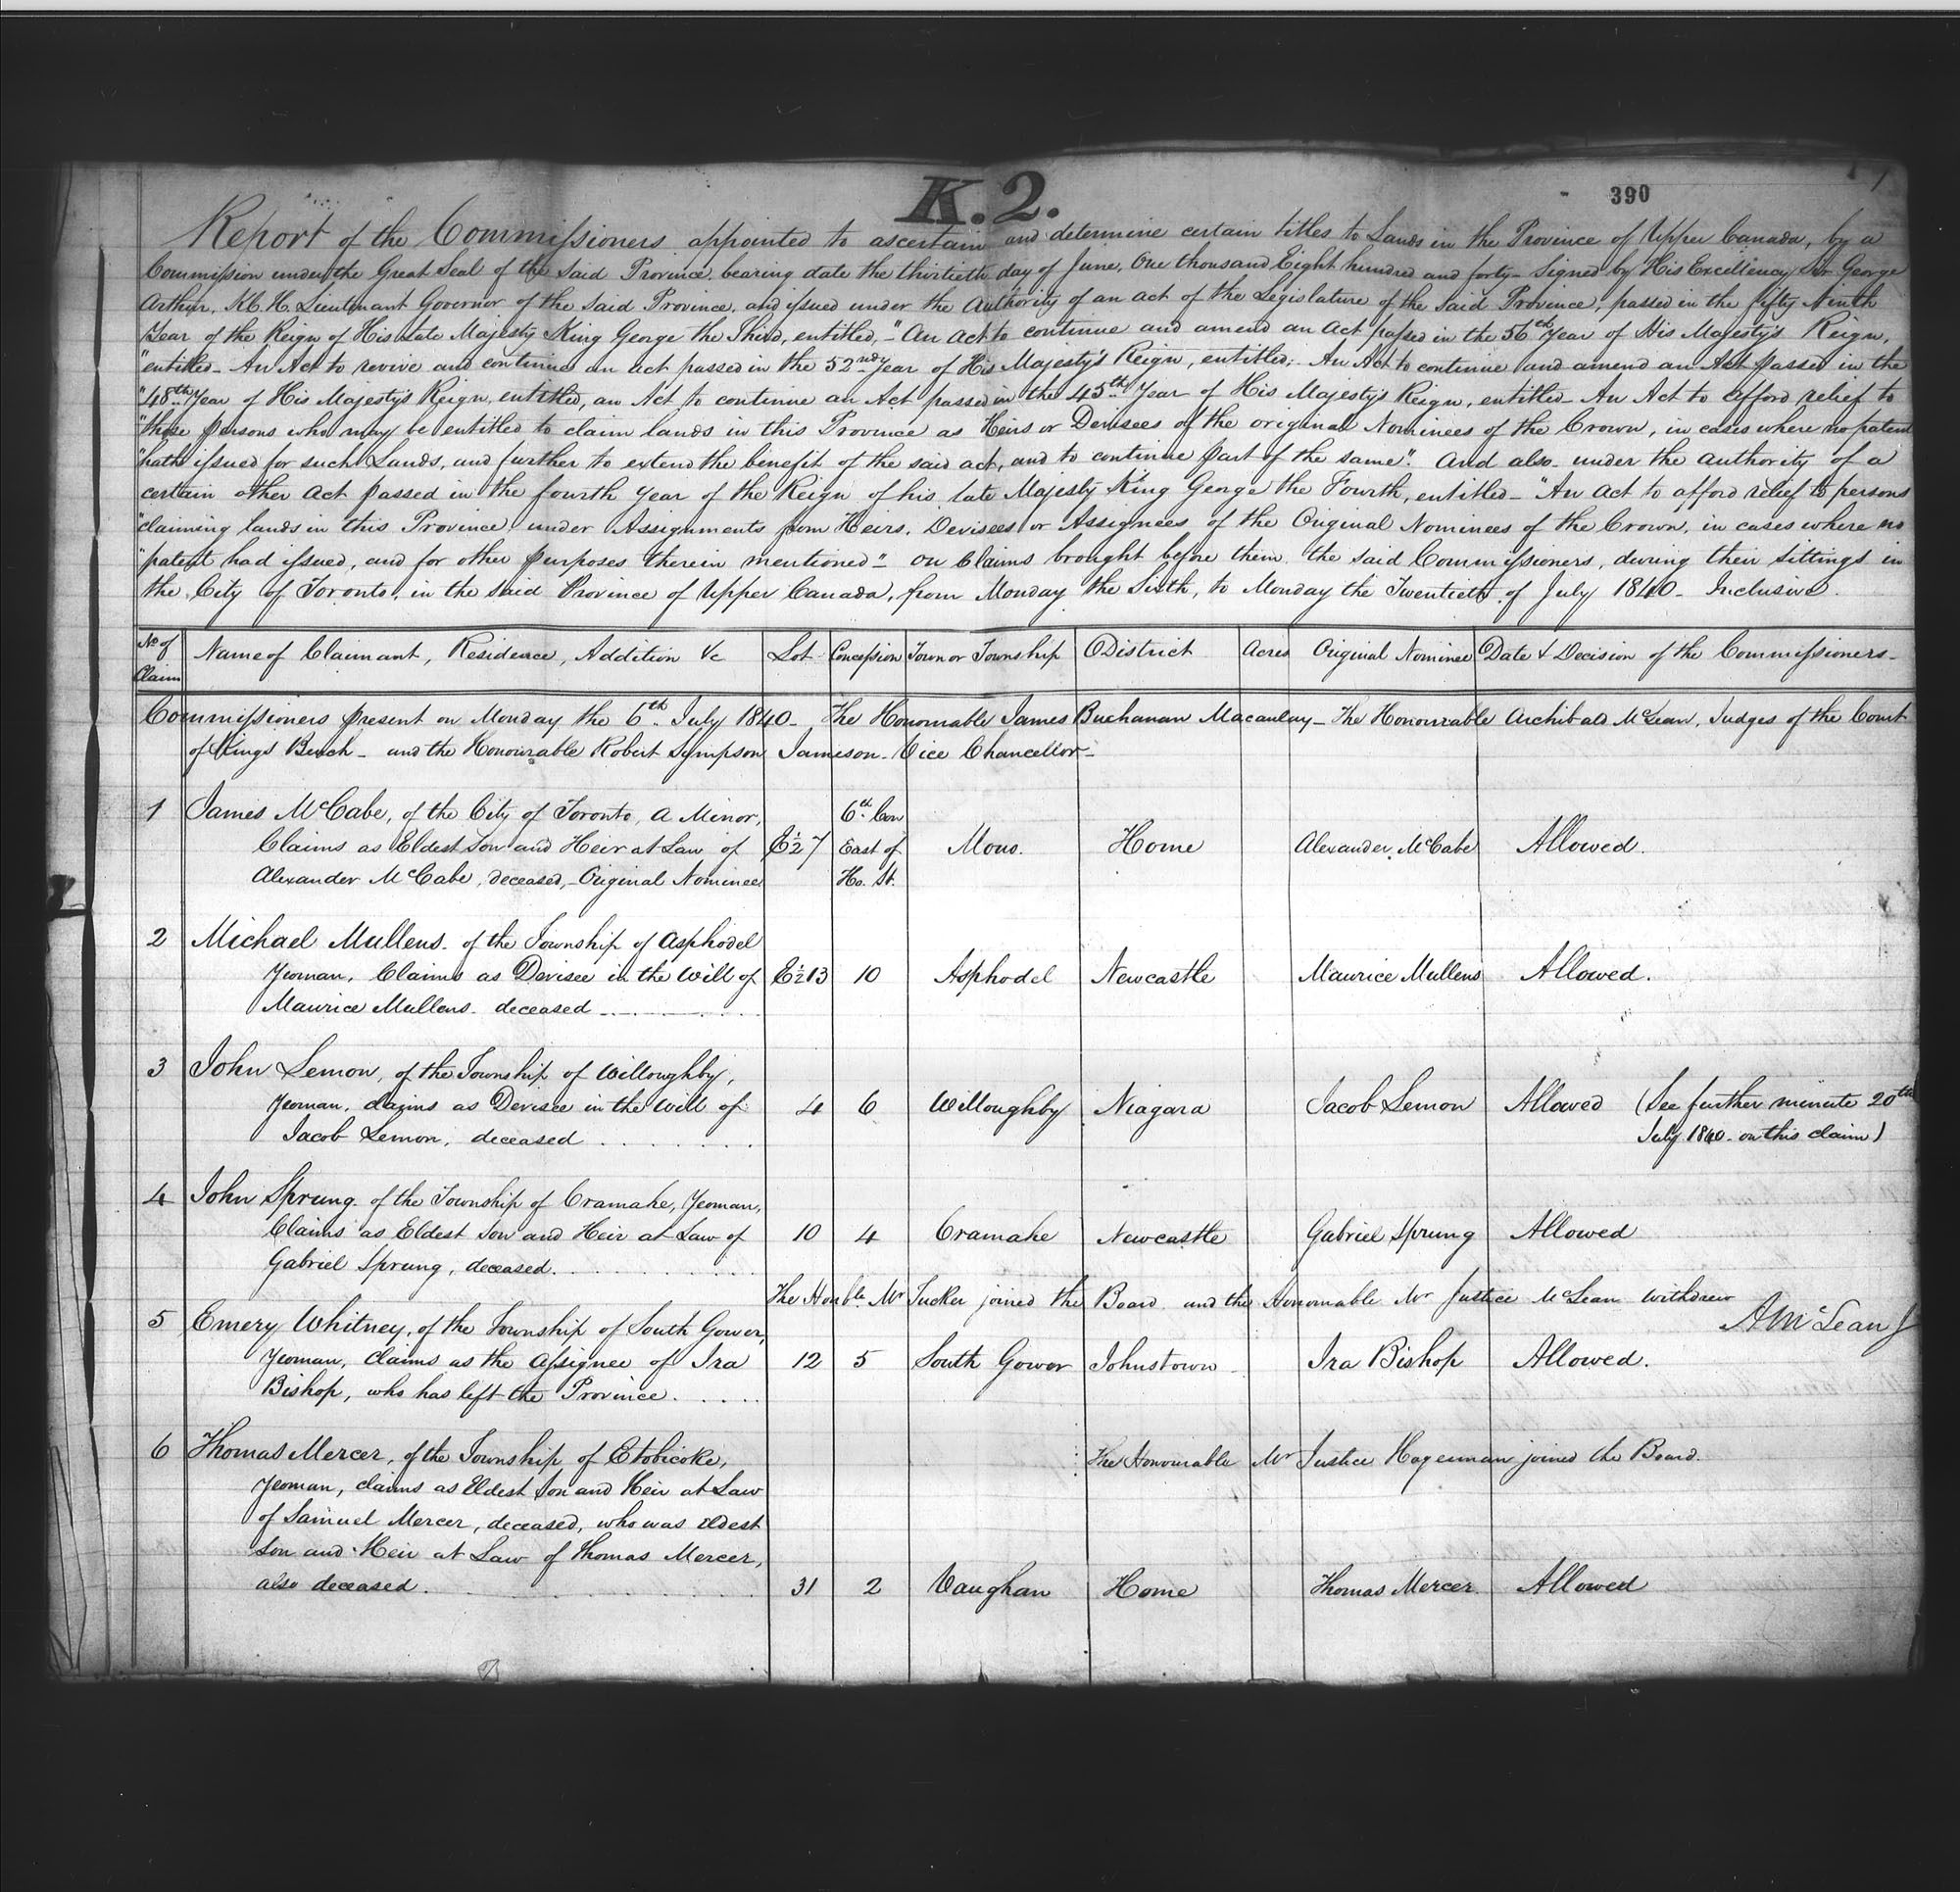 K.2.
390
Report of the Commissioners appointed to ascertain and determine certain titles to Lands in the Province of Upper Canada, by a
Commission under the Great Seal of the said Province, bearing date the thirtieth day of June, One thousand Eight hundred and forty – Signed by His Excellency Sir George
Arthur, K.C.H. Lieutenant Governor of the said Province, and issued under the Authority of an act of the Legislature of the said Province, passed in the fifty Ninth
Year of the Reign of His Late Majesty King George the Third, entitled, – "An Act to continue and amend an Act passed in the 56th Year of His Majesty's Reign,
"entitled – An Act to revive and continue an act passed in the 52nd Year of His Majesty's Reign, entitled, An Act to continue and amend an Act passed in the
"48th Year of His Majesty's Reign, entitled, an Act to continue an Act passed in the 45th Year of His Majesty's Reign, entitled – An Act to afford relief to
"those persons who may be entitled to claim lands in this Province as Heirs or Devisees of the original Nominees of the Crown, in cases where no patent
"hath issued for such Lands, and further to extend the benefit of the said act, and to continue part of the same". And also under the authority of a
certain other Act passed in the fourth Year of the Reign of his late Majesty King George the Fourth, entitled – "An Act to afford relief to persons
"claiming lands in this Province under Assignments from Heirs, Devisees or Assignees of the Original Nominees of the Crown, in cases where no
"patent had issued, and for other purposes therein mentioned" – on Claims brought before them the said Commissioners, during their sittings in
the City of Toronto, in the said Province of Upper Canada, from Monday the Sixth, to Monday the Twentieth of July 1840 – Inclusive.
No of Claim Name of Claimant, Residence, Addition &c Lot Concession Town or Township District Acres Original Nominee Date & Decision of the Commissioners –
Commissioners present on Monday the 6th July 1840 – The Honourable James Buchanan Macaulay – The Honourable Archibald McLean, Judges of the Court
of Kings Bench – and the Honourable Robert Sympson Jameson – Vice Chancellor –
1 James McCabe, of the City of Toronto, a Minor, 6th Con
Claims as Eldest Son and Heir at Law of E½ 7 East of Mono. Home Alexander McCabe Allowed.
Alexander McCabe, deceased, – Original Nominee Ho. St.
2 Michael Mullens of the Township of Asphodel
Yeoman, Claims as Devisee in the Will of E½ 13 10 Asphodel Newcastle Maurice Mullens Allowed.
Maurice Mullens deceased
3 John Lemon, of the Township of Willoughby,
Yeoman, claims as Devisee in the Will of 4 6 Willoughby Niagara Jacob Lemon Allowed (See further minute 20th
Jacob Lemon, deceased July 1840 – on this claim)
4 John Sprung of the Township of Cramahe, Yeoman,
Claims as Eldest Son and Heir at Law of 10 4 Cramahe Newcastle Gabriel Sprung Allowed
Gabriel Sprung, deceased.
The Honble Mr Tucker joined the Board and the Honourable Mr Justice McLean withdrew
A McLean J
5 Emery Whitney, of the Township of South Gower,
Yeoman, claims as the Assignee of Ira 12 5 South Gower Johnstown Ira Bishop Allowed.
Bishop, who has left the Province.
6 Thomas Mercer, of the Township of Etobicoke, The Honourable Mr Justice Hagerman joined the Board.
Yeoman, claims as Eldest Son and Heir at Law
of Samuel Mercer, deceased, who was eldest
Son and Heir at Law of Thomas Mercer,
also deceased. 31 2 Vaughan Home Thomas Mercer Allowed